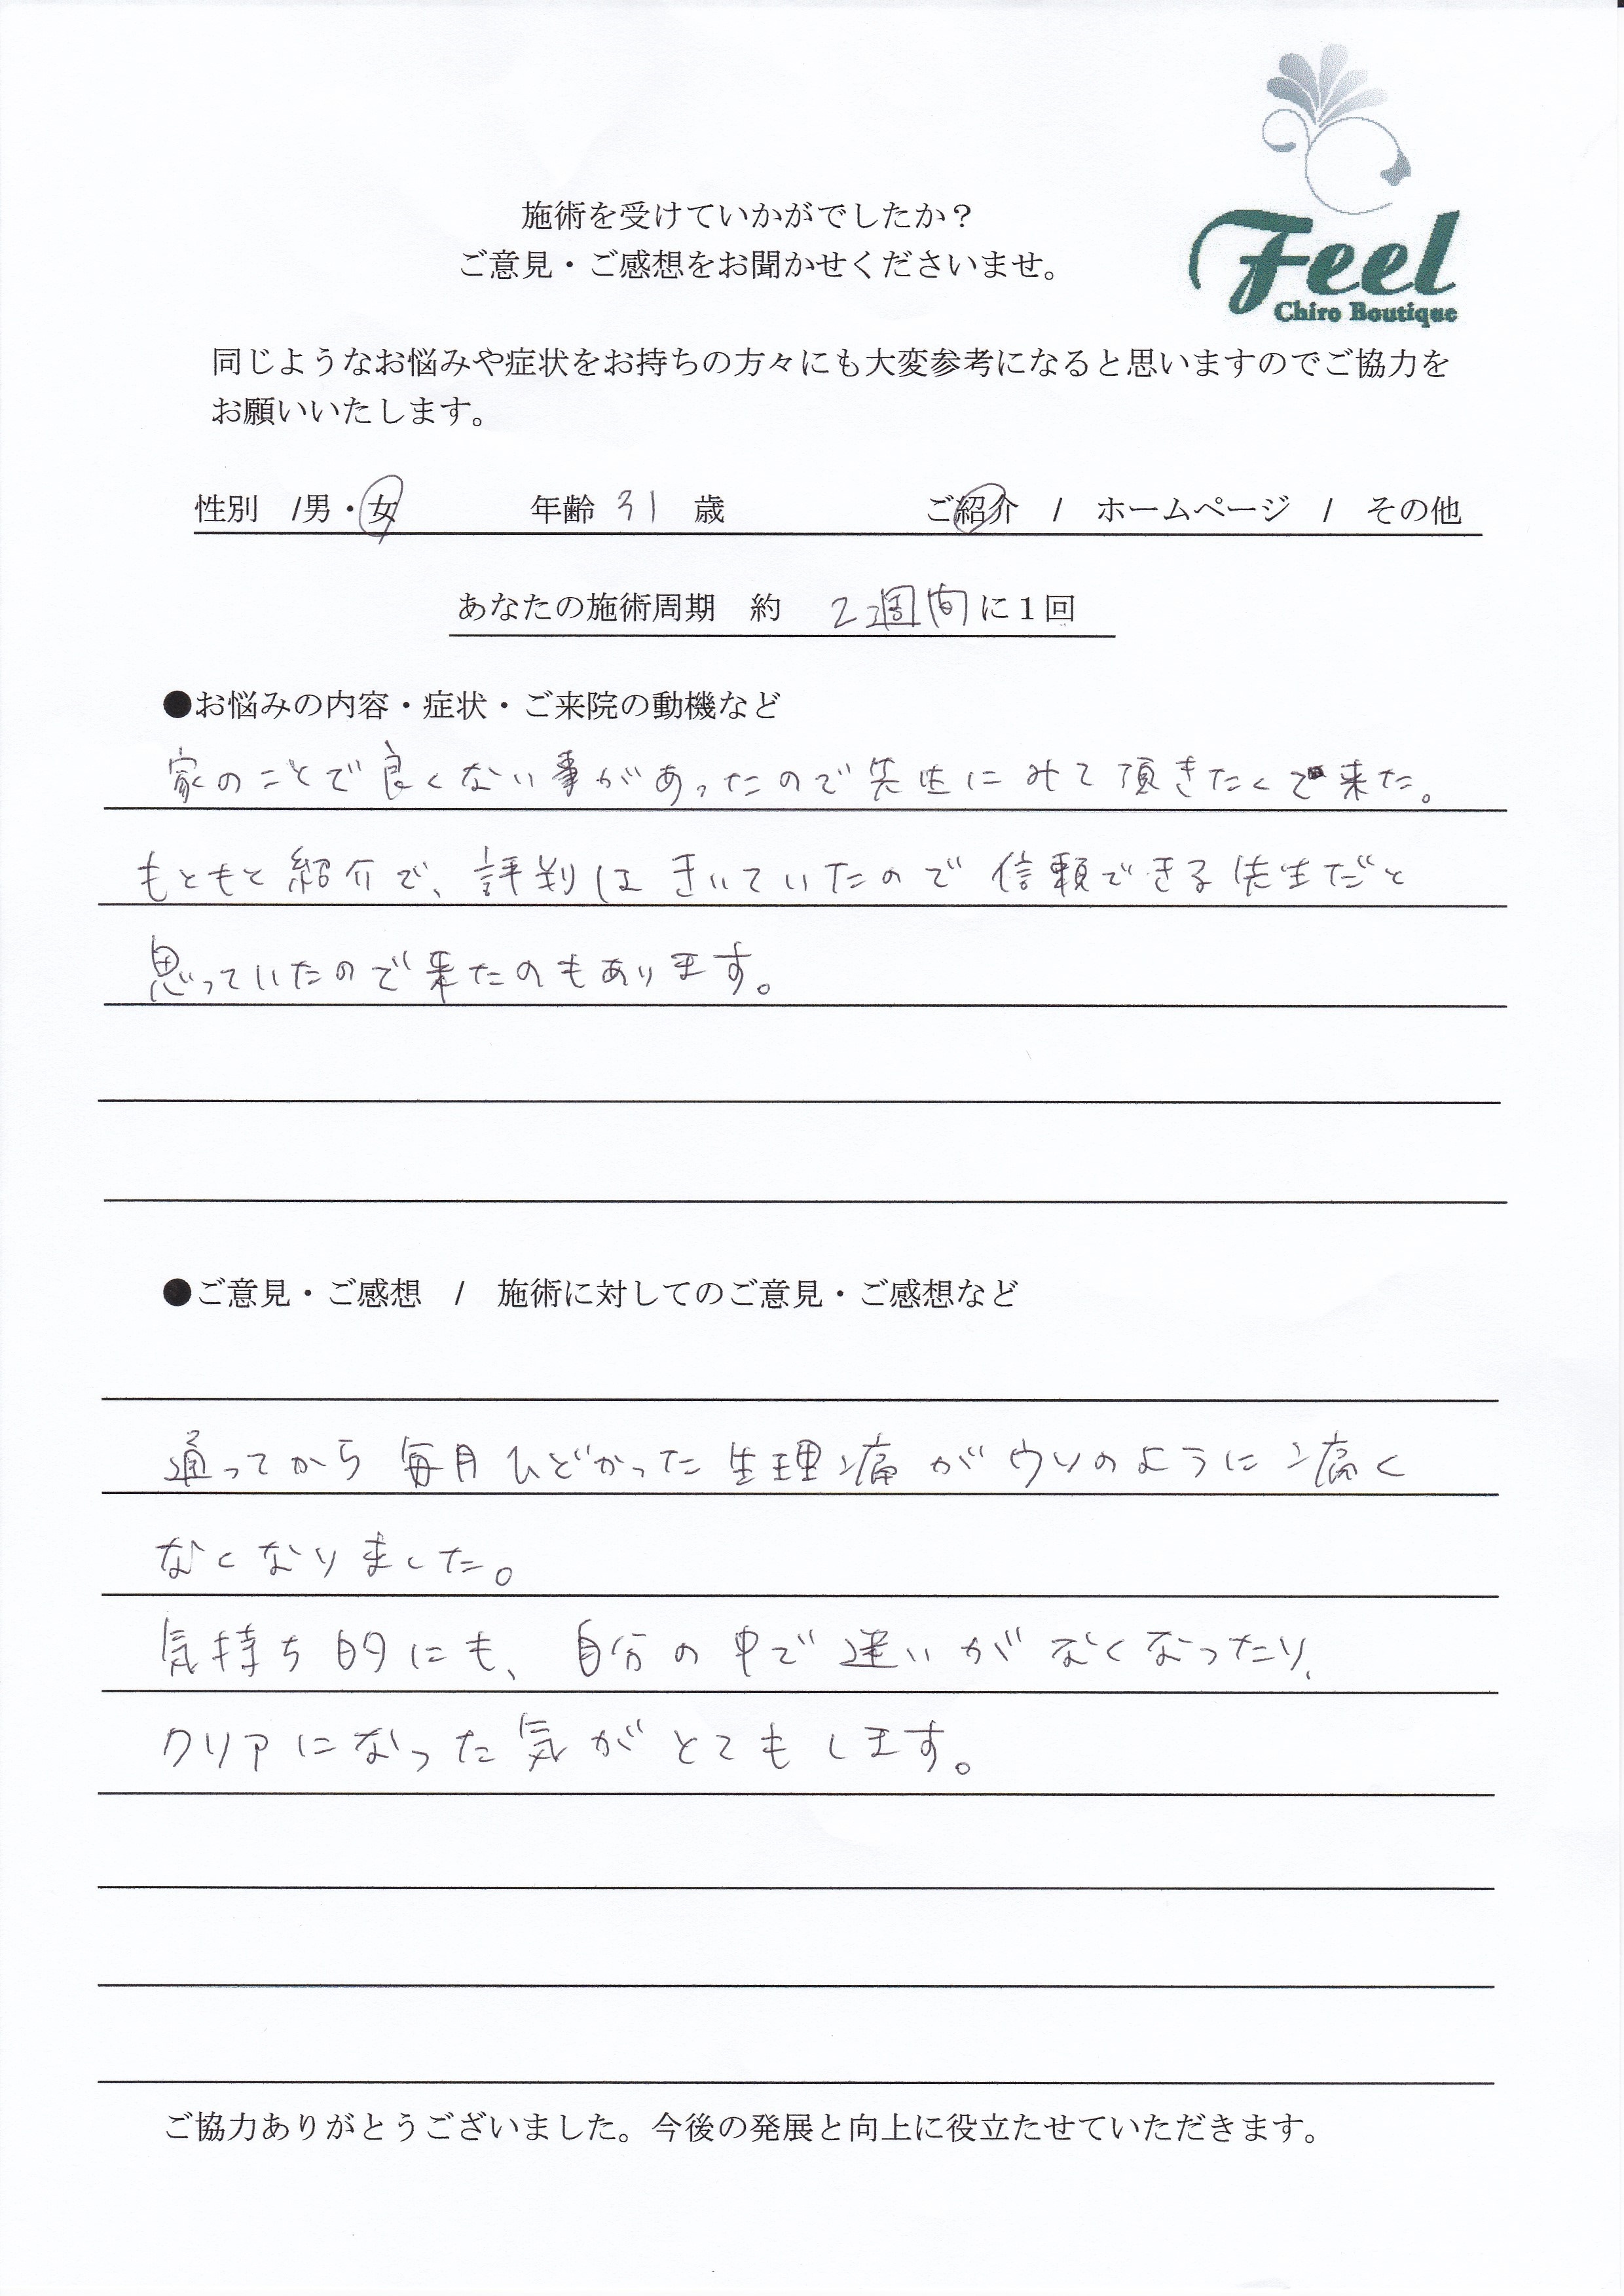 Feel
Chiro Boutique
施術を受けていかがでしたか？
ご意見・ご感想をお聞かせくださいませ。
同じようなお悩みや症状をお持ちの方々にも大変参考になると思いますのでご協力を
お願いいたします。
性別 /男・女 年齢 31 歳 ご紹介 / ホームページ / その他
あなたの施術周期 約 2週間に１回
●お悩みの内容・症状・ご来院の動機など
家のことで良くない事があったので先生にみて頂きたくて来た。
もともと紹介で、評判はきいていたので信頼できる先生だと
思っていたので来たのもあります。
●ご意見・ご感想 / 施術に対してのご意見・ご感想など
通ってから毎月ひどかった生理痛がウソのように痛く
なくなりました。
気持ち的にも、自分の中で迷いがなくなったり、
クリアになった気がとてもします。
ご協力ありがとうございました。今後の発展と向上に役立たせていただきます。